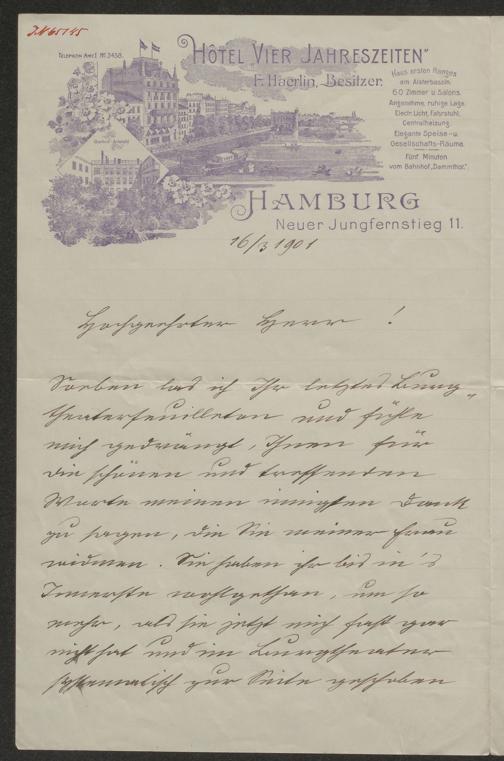 J.N 65145
TELEPHON AMT I. Nr. 3458.
„HÔTEL VIER JAHRESZEITEN“
F. Haerlin, Besitzer.
Haus ersten Ranges
am Alsterbassin.
60 Zimmer u. Salons.
Angenehme, ruhige Lage.
Electr. Licht, Fahrstuhl,
Centralheizung.
Elegante Speise- u.
Gesellschafts-Räume.
Fünf Minuten
vom Bahnhof „Dammthor.“
HAMBURG
Neuer Jungfernstieg 11.
16/3 1901
Hochgeehrter Herr !
Soeben las ich Ihr letztes Burg-
theaterfeuilleton und fühle
mich gedrängt, Ihnen für
die schönen und treffenden
Worte meinen innigsten Dank
zu sagen, die Sie meiner Frau
widmen. Sie haben ihr bis in's
Innerste wohlgethan, um so
mehr, als sie jetzt mich fast gar
nicht hat und im Burgtheater
systematisch zur Seite geschoben